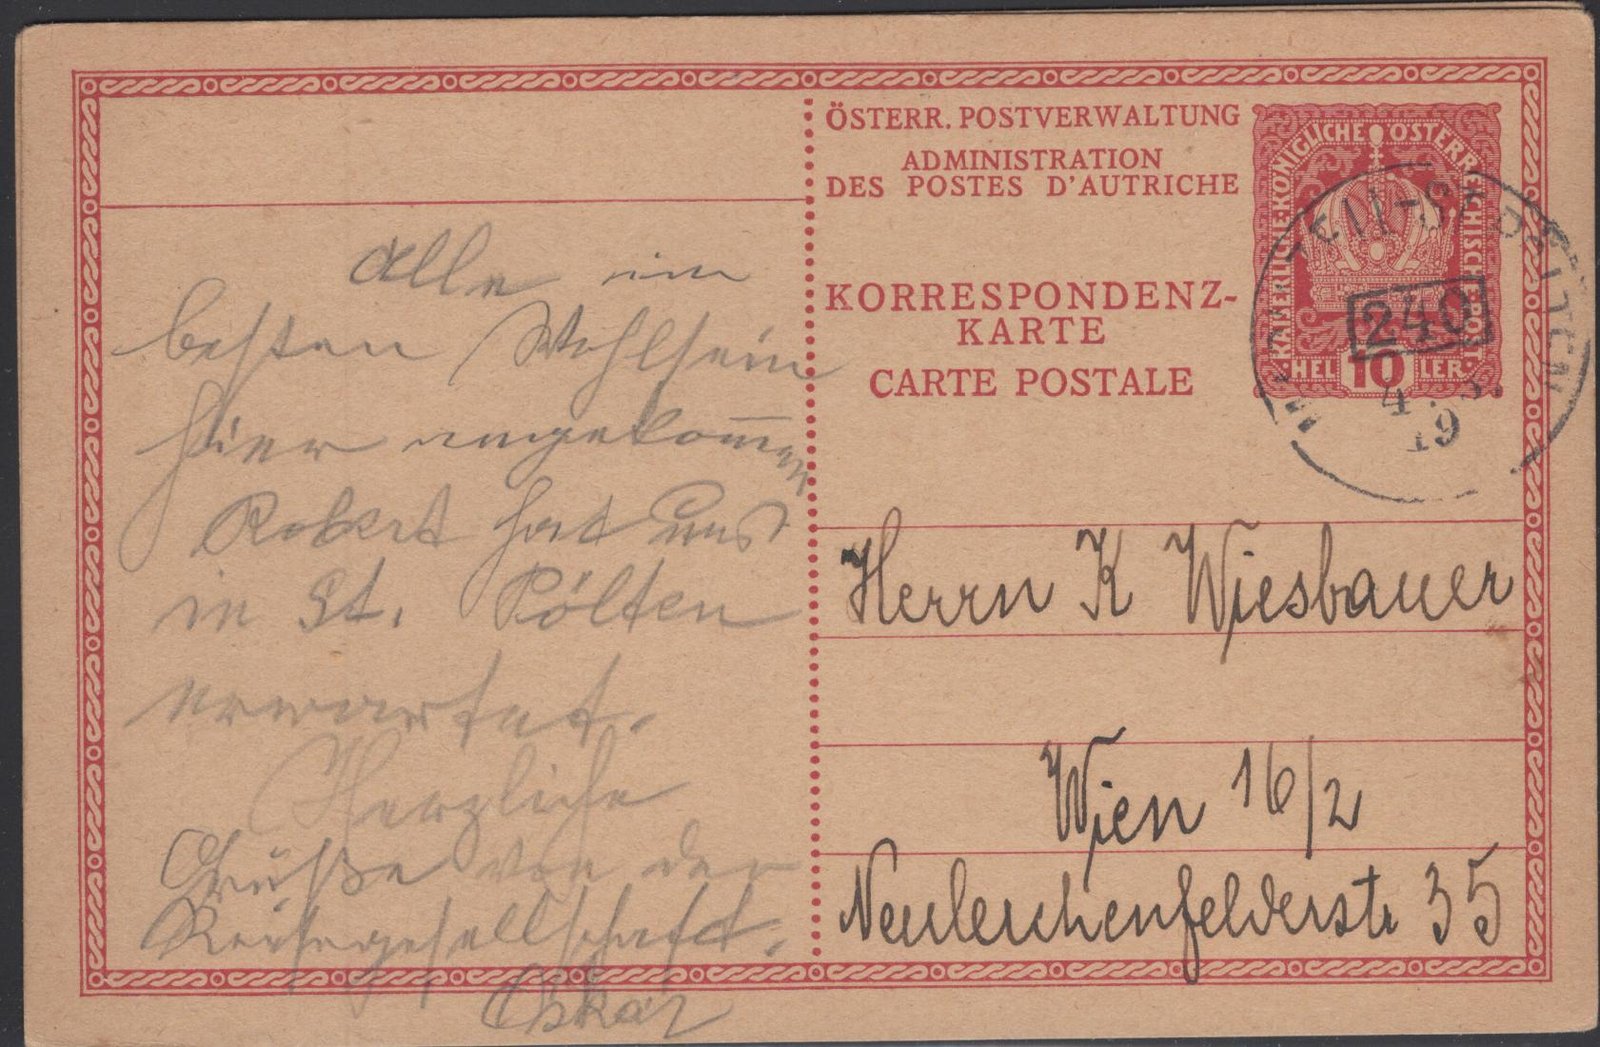 Alle im
besten Wohlsein
hier angekommen
Robert hat uns
in St. Pölten
erwartet.
Herzliche
Grüße von der
Reisegesellschaft.
Oskar
ÖSTERR. POSTVERWALTUNG
ADMINISTRATION
DES POSTES D'AUTRICHE
KORRESPONDENZ-
KARTE
CARTE POSTALE
KAISERLICHE·KÖNIGLICHE ÖSTERREICHISCHE·POST
HELLER
10
240
4
19
Herrn K Wiesbauer
Wien 16/2
Neulerchenfelderstr 35